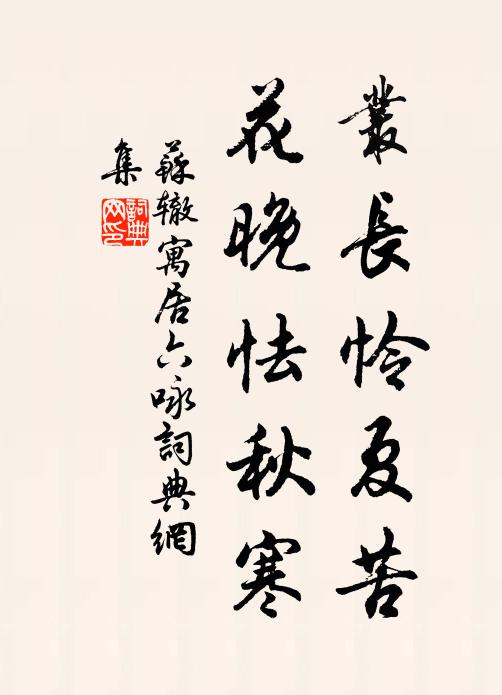 叢長怜夏苦
花晚怯秋寒
蘇辙寓居六咏詞典網
集
詞典網印